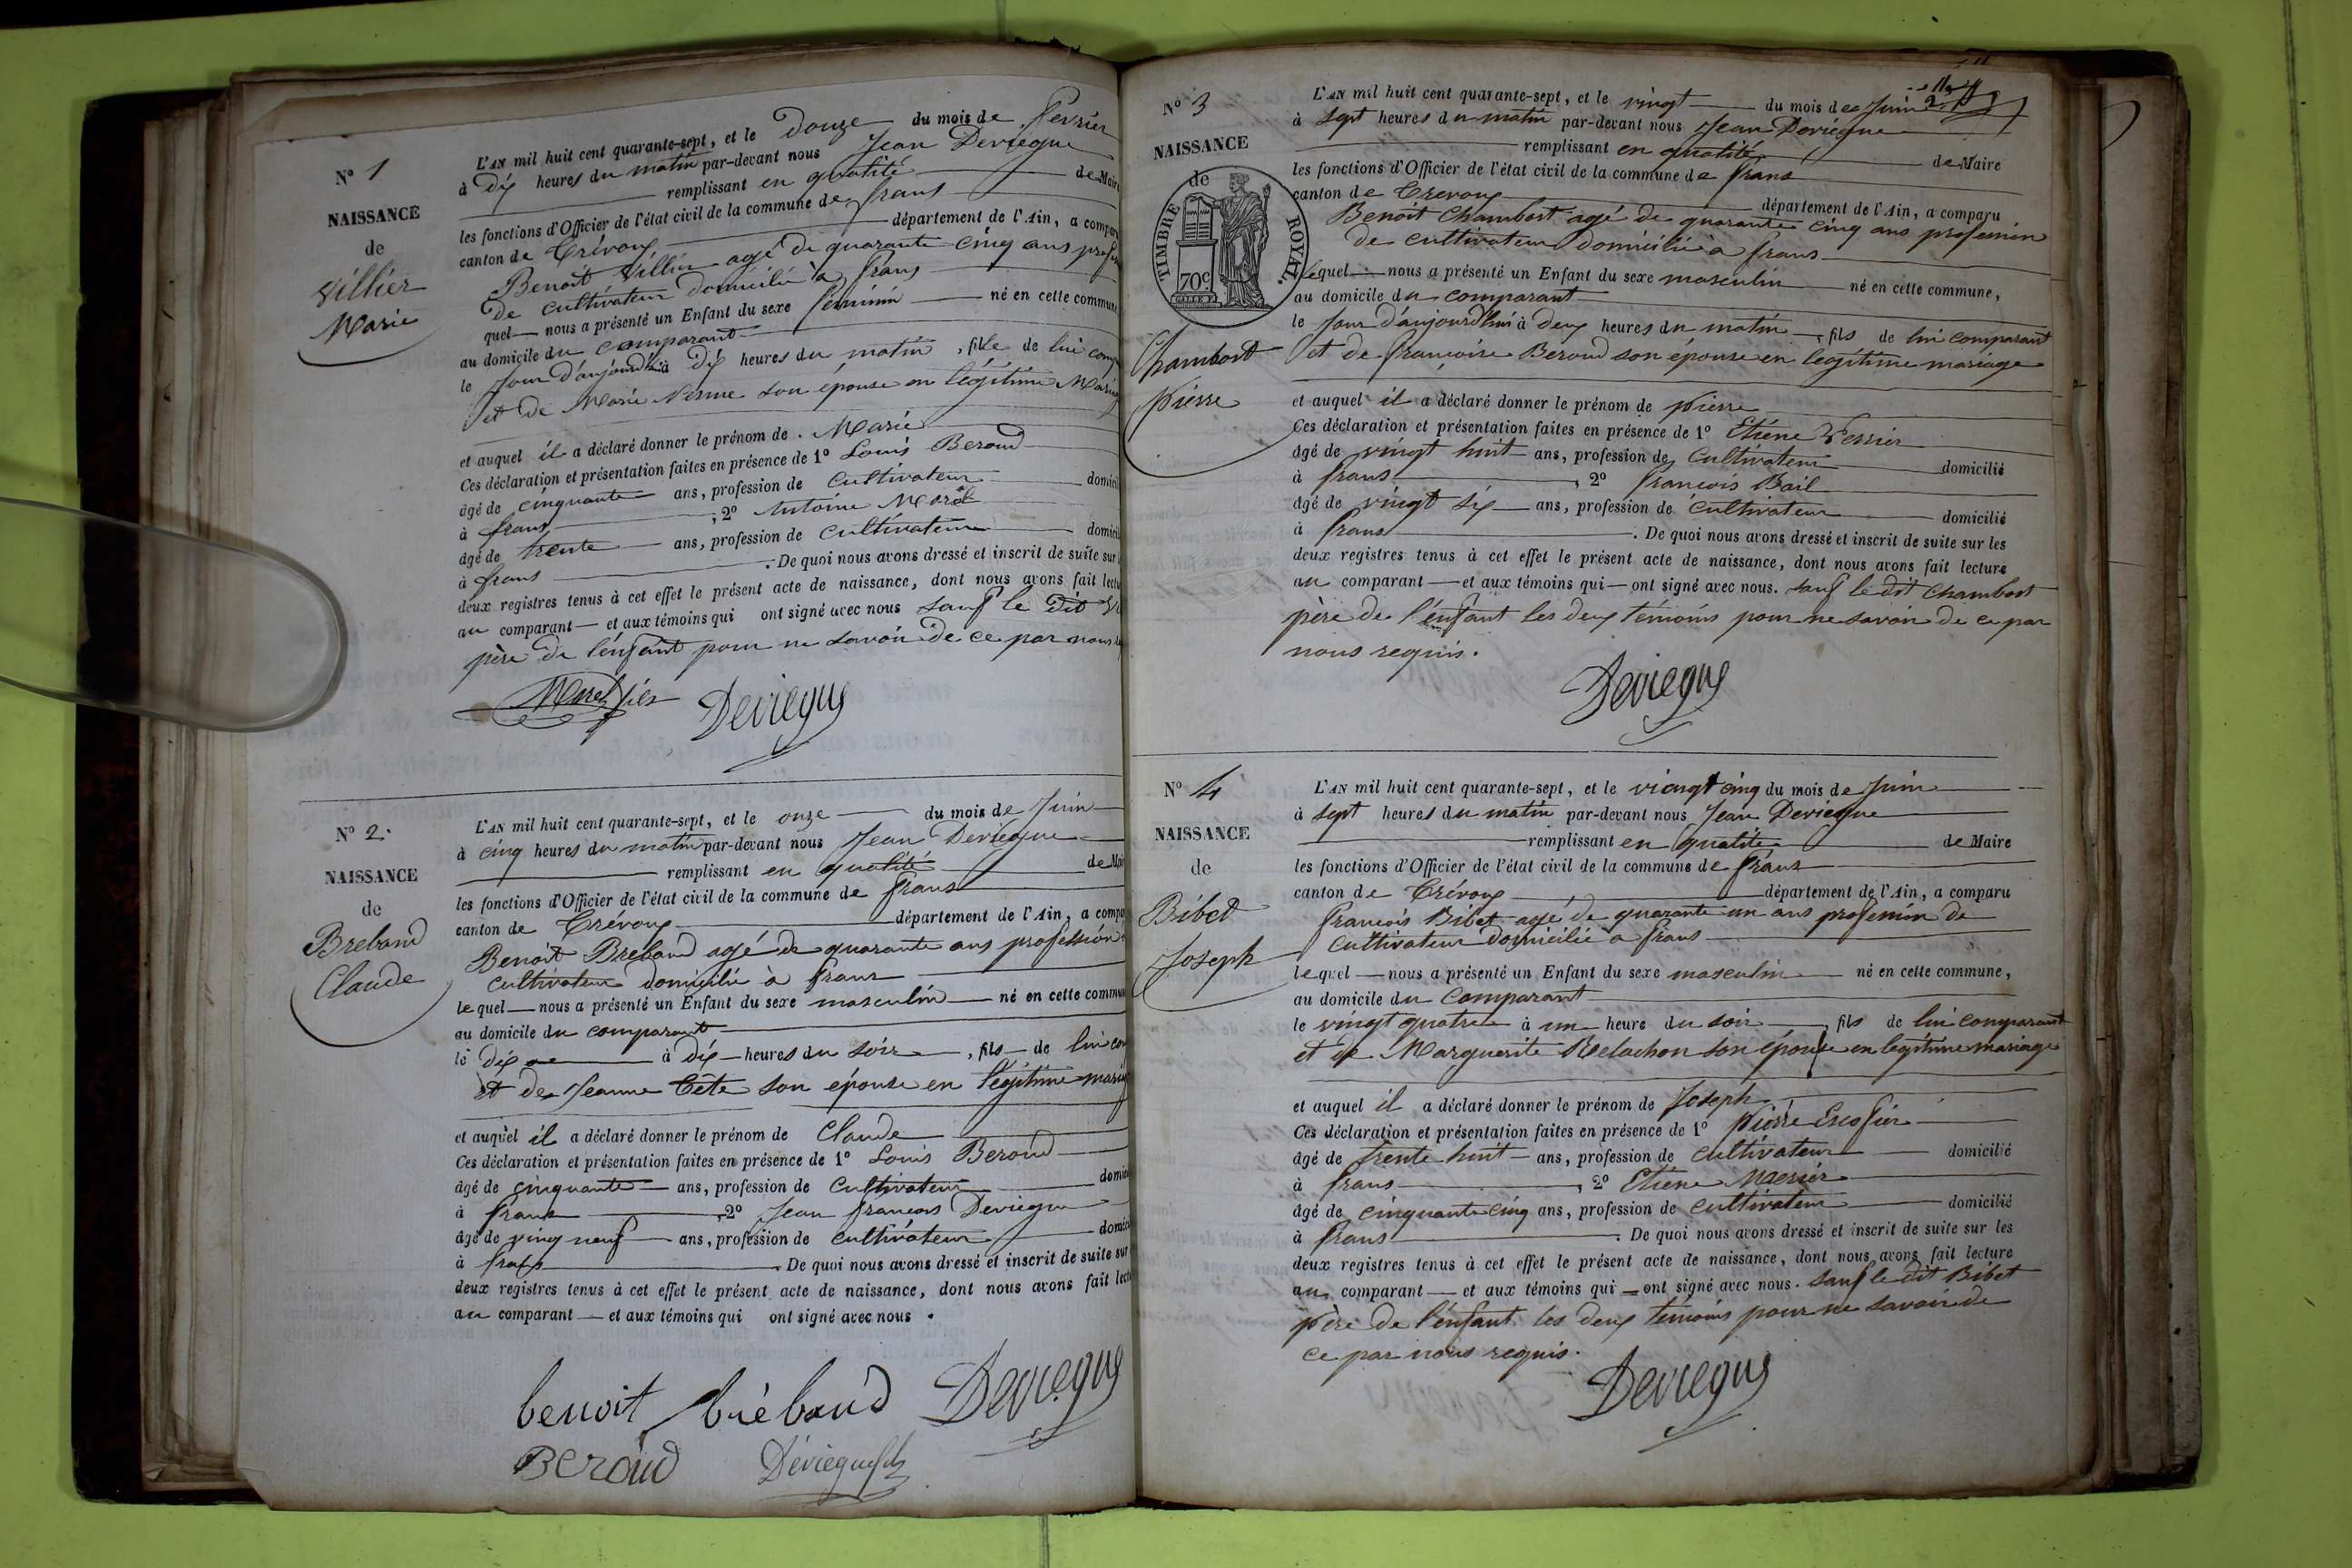 N° 1
NAISSANCE
de
Villier
Marie
L'AN mil huit cent quarante-sept, et le Douze du mois de fevrier
à Dix heures du matin par-devant nous Jean Deviegue
remplissant en qualité de Maire
les fonctions d'Officier de l'état civil de la commune de frans
canton de Trévoux département de l'Ain, a compa
Benoit Villier agé de quarante cinq ans profes
De cultivateur domicilié à frans
quel nous a présenté un Enfant du sexe féminin né en cette commune
au domicile du comparant
le Jour d'aujourd'hui à dix heures du matin, fille de lui comp
et de Marie son épouse en légitime Mariag
et auquel il a déclaré donner le prénom de Marie
Ces déclaration et présentation faites en présence de 1° Louis Beroud
âgé de cinquante ans, profession de cultivateur domicil
à frans, 2° Antoine Morel
âgé de trente ans, profession de cultivateur domicil
à frans. De quoi nous avons dressé et inscrit de suite sur l
deux registres tenus à cet effet le présent acte de naissance, dont nous avons fait lectu
au comparant et aux témoins qui ont signé avec nous sauf le Dit Vi
père de l'énfant pour ne savoir de ce par nous
Deviegue
N° 2
NAISSANCE
de
Breband
Claude
L'AN mil huit cent quarante-sept, et le onze du mois de Juin
à cinq heures du matin par-devant nous Jean Deviegue
remplissant en qualité de Mai
les fonctions d'Officier de l'état civil de la commune de frans
canton de Trévoux département de l'Ain, a compa
Benoit Breband agé de quarante ans profession
cultivateur domicilié à frans
lequel nous a présenté un Enfant du sexe masculin né en cette commun
au domicile du comparant
le Dix à dix heures du soir, fils de lui com
et de Jeanne Tête son épouse en légitime mariag
et auquel il a déclaré donner le prénom de Claude
Ces déclaration et présentation faites en présence de 1° Louis Beroud
âgé de cinquante ans, profession de cultivateur domici
à frans, 2° Jean francois Deviegue
âgé de ving neuf ans, profession de cultivateur domici
à frans. De quoi nous avons dressé et inscrit de suite sur
deux registres tenus à cet effet le présent acte de naissance, dont nous avons fait lect
au comparant et aux témoins qui ont signé avec nous.
benoit bréband Deviegue
Beroud Déviegue fils
N° 3
NAISSANCE
de
TIMBRE ROYAL.
70c
Chambort
Pierre
L'AN mil huit cent quarante-sept, et le vingt du mois de Juin
à sept heures du matin par-devant nous Jean Deviegue
remplissant en qualité de Maire
les fonctions d'Officier de l'état civil de la commune de frans
canton de Trevoux département de l'Ain, a comparu
Benoit Chambort agé de quarante cinq ans profession
de cultivateur domicilié à frans
lequel nous a présenté un Enfant du sexe masculin né en cette commune,
au domicile du comparant
le Jour d'aujourd'hui à deux heures du matin, fils de lui comparant
et de francoise Beroud son épouse en legitime mariage
et auquel il a déclaré donner le prénom de pierre
Ces déclaration et présentation faites en présence de 1° Etiéne
âgé de vingt huit ans, profession de Cultivateur domicilié
à frans, 2° francois Bail
âgé de vingt six ans, profession de Cultivateur domicilié
à frans. De quoi nous avons dressé et inscrit de suite sur les
deux registres tenus à cet effet le présent acte de naissance, dont nous avons fait lecture
au comparant et aux témoins qui ont signé avec nous. sauf le dit Chambort
père de l'énfant les deux témoins pour ne savoir de ce par
nous requis.
Deviegue
N° 4
NAISSANCE
de
Bibet
Joseph
L'AN mil huit cent quarante-sept, et le viangt cinq du mois de Juin
à sept heures du matin par-devant nous Jean Deviegue
remplissant en qualité de Maire
les fonctions d'Officier de l'état civil de la commune de frans
canton de Trévoux département de l'Ain, a comparu
francois Bibet agé de quarante un ans profession de
cultivateur domicilié à frans
lequel nous a présenté un Enfant du sexe masculin né en cette commune,
au domicile du Comparant
le vingt quatre à un heure du soir, fils de lui comparant
et de Marguerite Relachon son épouse en legitime mariage
et auquel il a déclaré donner le prénom de Joseph
Ces déclaration et présentation faites en présence de 1° pierre Escofier
âgé de trente huit ans, profession de cultivateur domicilié
à frans, 2° Etiéne
âgé de cinquante cinq ans, profession de cultivateur domicilié
à frans. De quoi nous avons dressé et inscrit de suite sur les
deux registres tenus à cet effet le présent acte de naissance, dont nous avons fait lecture
au comparant et aux témoins qui ont signé avec nous. sauf le dit Bibet
père de l'énfant les deux témoins pour ne savoir de
ce par nous requis.
Deviegue